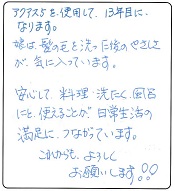 アクアス5を使用して、13年目に
なります。
娘は、髪の毛を洗った後のやさしさ
が、気に入っています。
安心して、料理・洗たく、風呂
にと、使えることが日常生活の
満足に、つながっています。
これからも、よろしく
お願いします!!